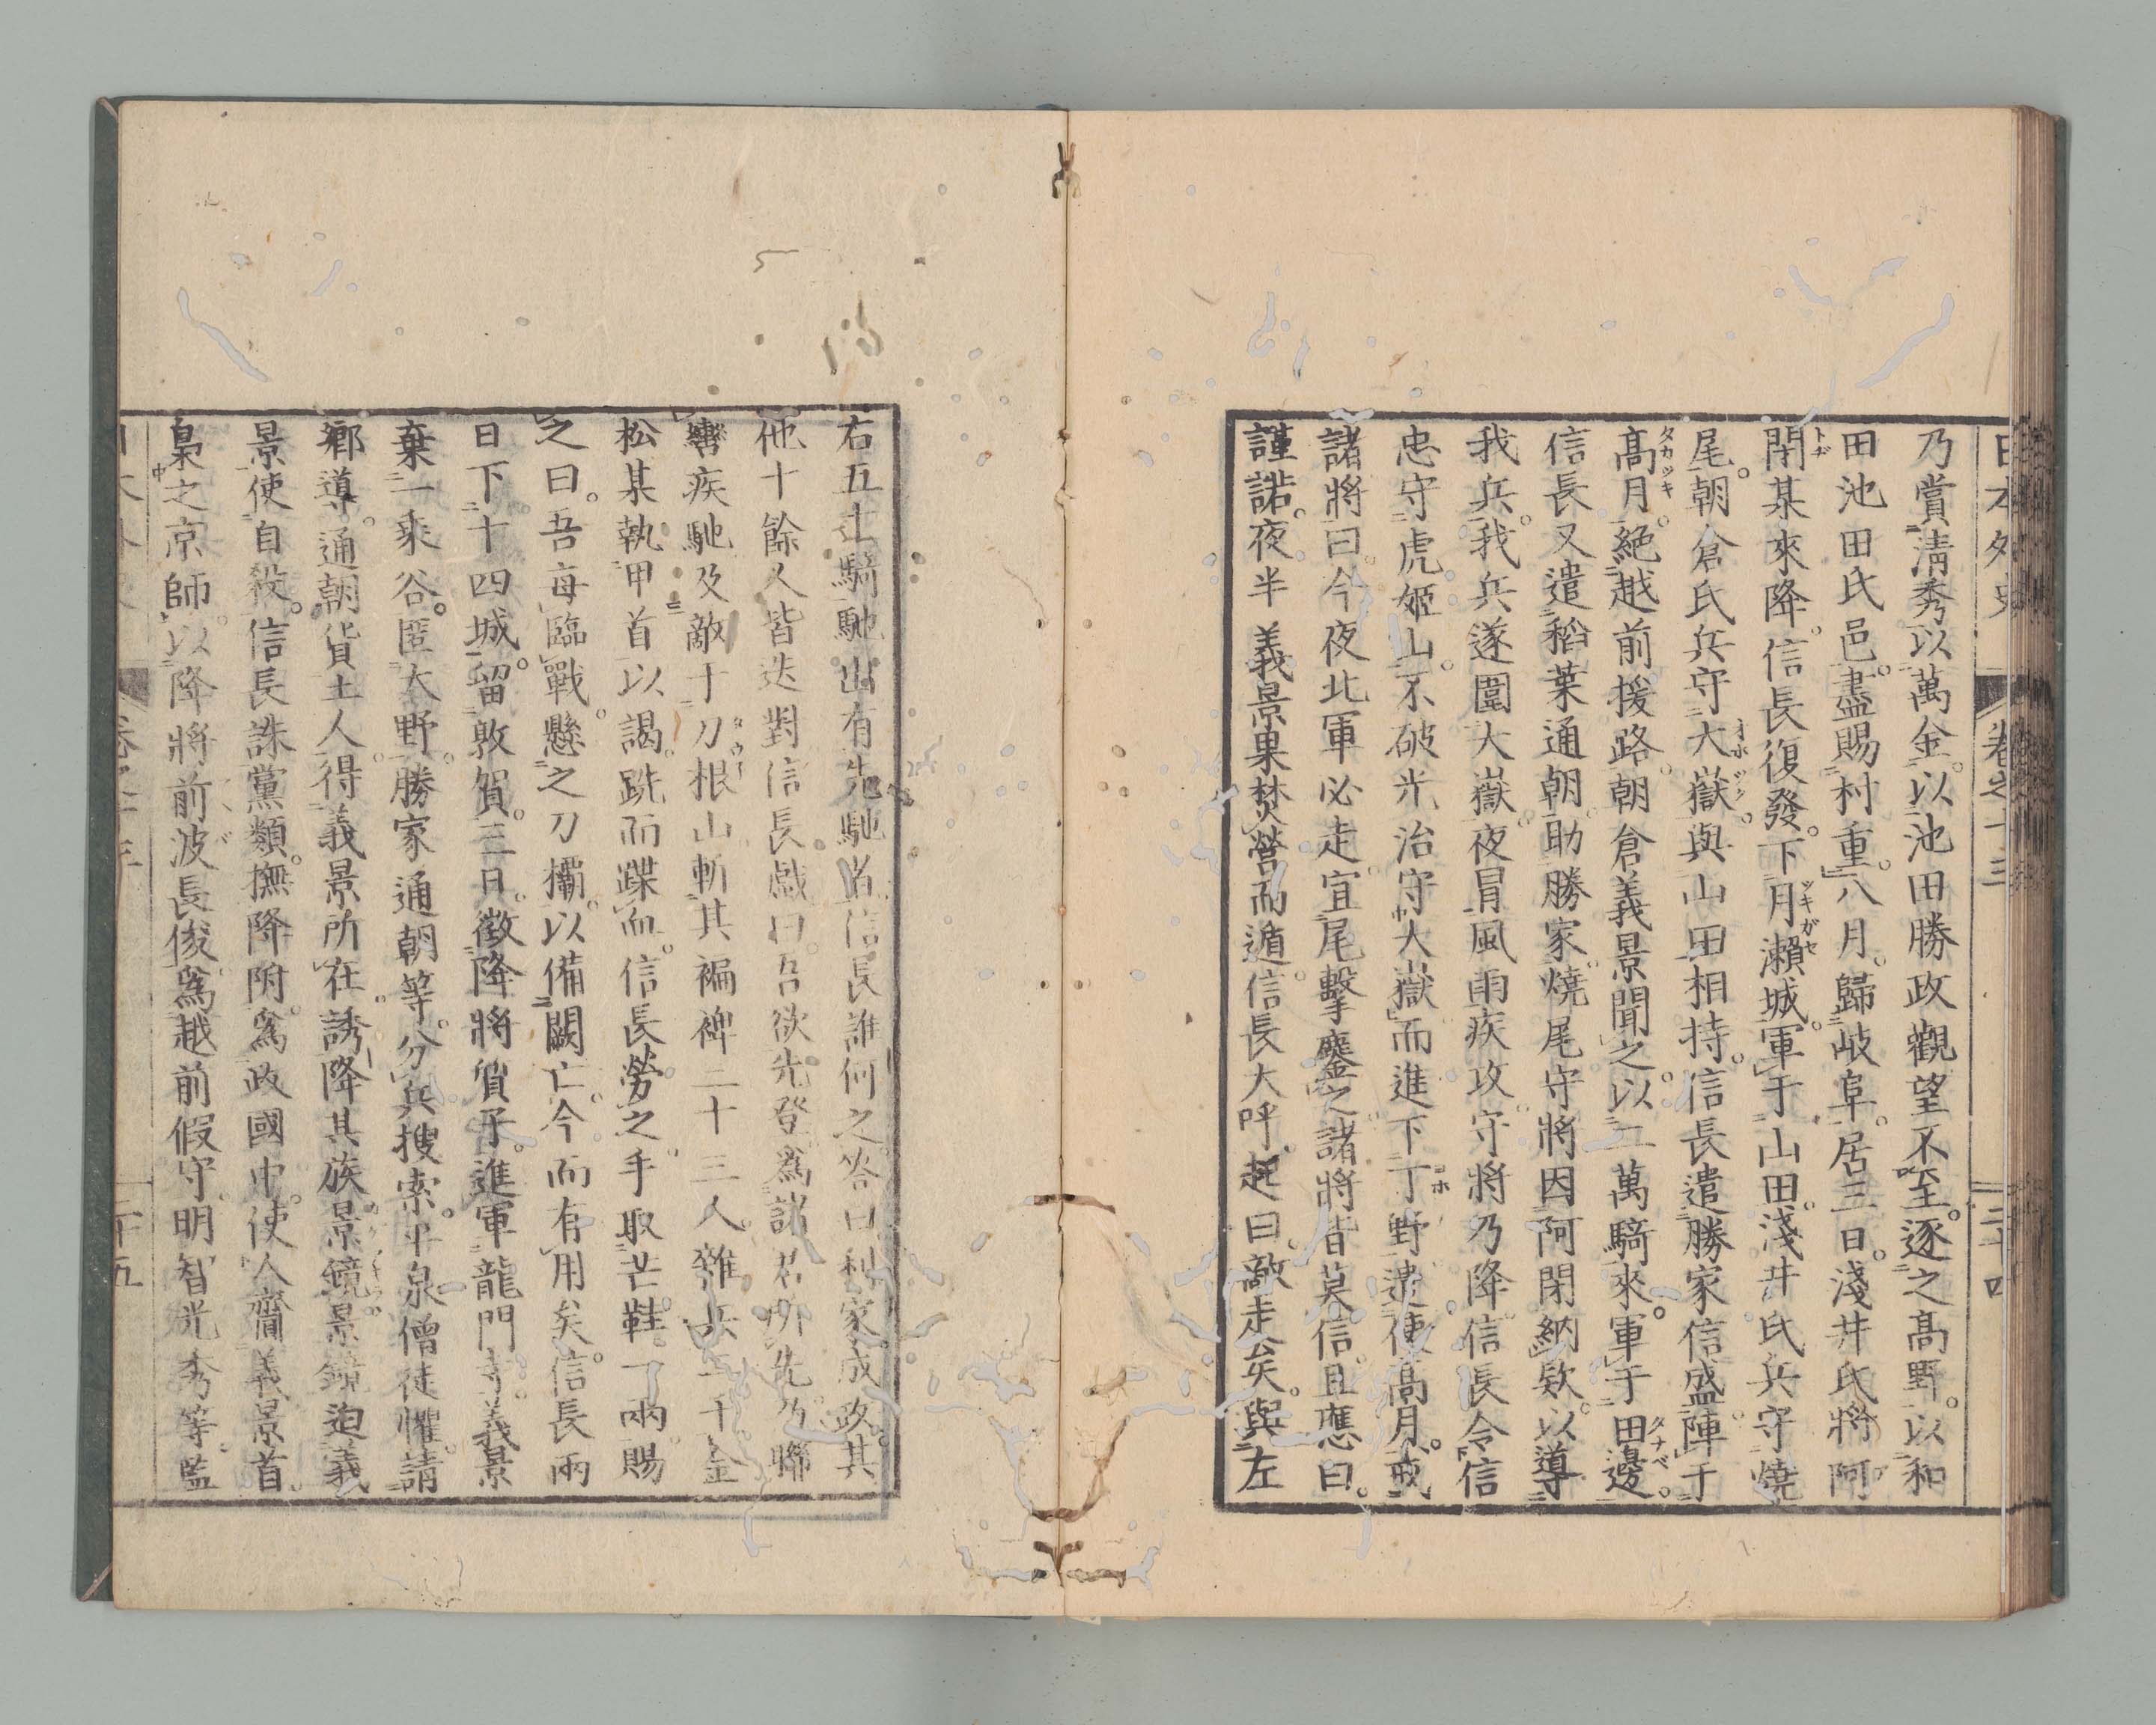 日本外史 卷之十三 二十四
乃賞清秀以萬金。以池田勝政觀望不至。逐之髙野。以和
田池田氏邑。盡賜村重。八月。歸岐阜。居三日。淺井氏將阿
閉某來降。信長復發。下月瀨城。軍于山田。淺井氏兵守燒
尾。朝倉氏兵守大嶽。與山田相持。信長遣勝家信盛陣于
髙月。絕越前援路。朝倉義景聞之。以二萬騎來。軍于田邊。
信長又遣稻葉通朝。助勝家。燒尾守將因阿閉納欵。以導
我兵。我兵遂圍大嶽。夜冒風雨疾攻。守將乃降。信長令信
忠守虎姬山。不破光治守大嶽。而進下丁野。遣使髙月。戒
諸將曰。今夜北軍必走。宜尾擊鏖之。諸將皆莫信。且應曰。
謹諾。夜半義景果焚營而遁。信長大呼。起曰。敵走矣。與左
右五士騎馳出。有先馳者。信長誰何之。答曰利家。成政。其
他十餘人皆迭對。信長戲曰。吾欲先登爲諸君所先。乃聯
轡疾馳。及敵于刀根山。斬其褊裨二十三人。雜兵二千。金
松某執甲首以謁。跣而蹀血。信長勞之。手取芒鞋一兩賜
之曰。吾每臨戰。懸之刀欛。以備闕亡。今而有用矣。信長兩
日下十四城。留敦賀。三日。徵降將質子。進軍龍門寺。義景
棄一乘谷。匿大野。勝家通朝等。分兵搜索。平泉僧徒懼。請
鄉導。通朝貨土人。得義景所在。誘降其族景鏡。景鏡迫義
景使自殺。信長誅黨類。撫降附。爲政國中。使人齎義景首。
梟之京師。以降將前波長俊爲越前假守。明智光秀等。監